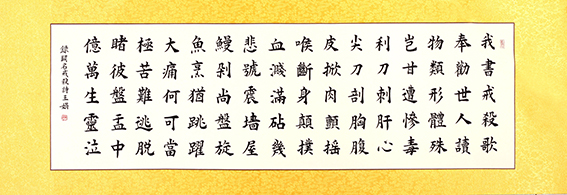 我書戒殺歌
奉勸世人讀
物類形體殊
豈甘遭慘毒
利刀刺肝心
尖刀剖胸腹
皮掀肉顫搖
喉斷身顛撲
血濺滿砧幾
悲號震墻屋
鰻剁尚盤旋
魚烹猶跳躍
大痛何可當
極苦難逃脫
睹彼盤盂中
億萬生靈泣
錄闕名戒殺詩王娟